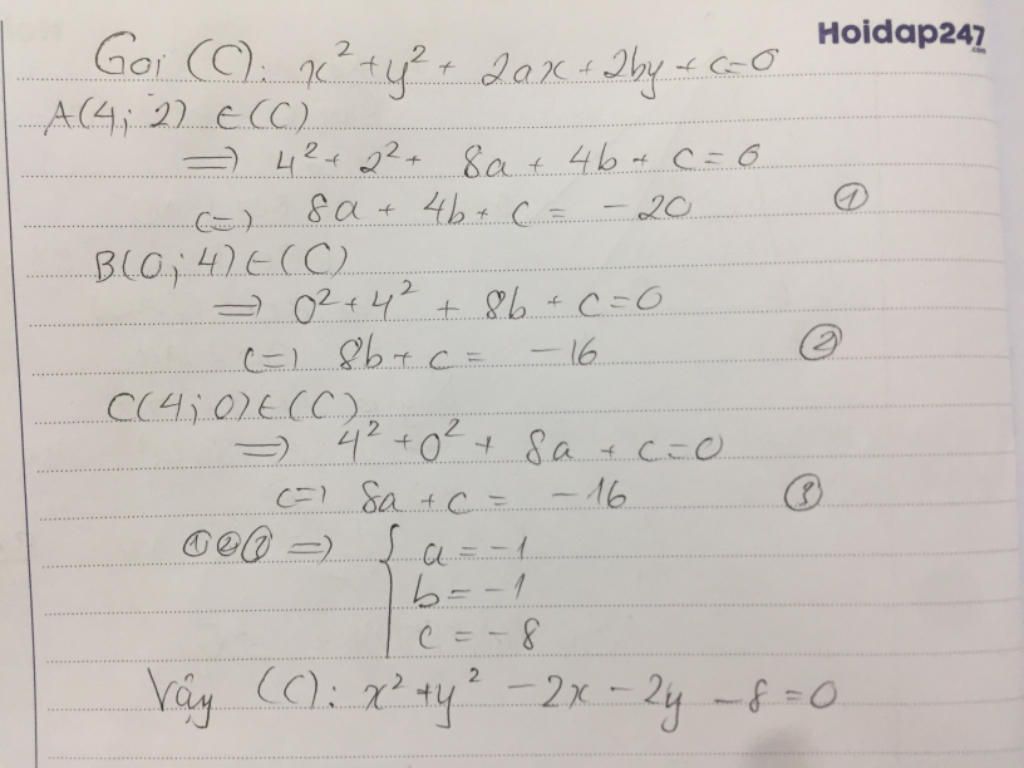 Hoidap247
.com
Gọi (C): x² + y² + 2ax + 2by + c = 0
A(4; 2) ∈ (C)
=> 4² + 2² + 8a + 4b + c = 0
<=> 8a + 4b + c = -20 ①
B(0; 4) ∈ (C)
=> 0² + 4² + 8b + c = 0
<=> 8b + c = -16 ②
C(4; 0) ∈ (C)
=> 4² + 0² + 8a + c = 0
<=> 8a + c = -16 ③
①②③ => { a = -1
b = -1
c = -8
Vậy (C): x² + y² - 2x - 2y - 8 = 0